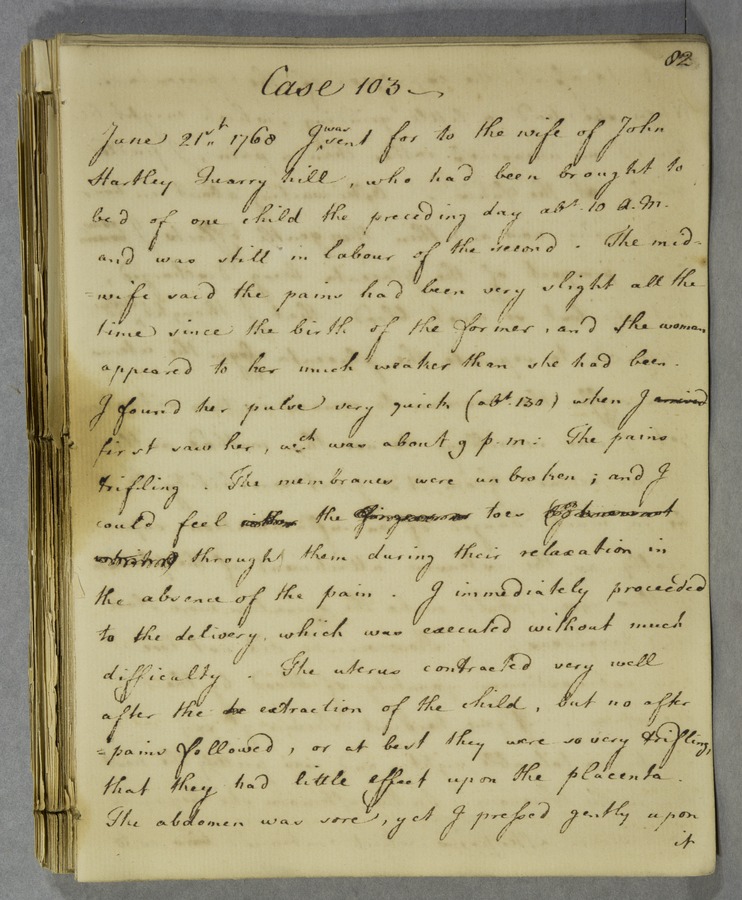 82
Case 103
June 21st. 1768 I was sent for to the wife of John
Hartley Quarry hill, who had been brought to
bed of one child the preceding day abt. 10 a.m.
and was still in labour of the second. The mid=
=wife said the pains had been very slight all the
time since the birth of the former, and the woman
appeared to her much weaker than she had been.
I found her pulse very quick (abt. 130) when I arrived
first saw her, wch was about 9 p.m: The pains
trifling. The membranes were unbroken; and I
could feel the toes
through them during their relaxation in
the absence of the pain. I immediately proceeded
to the delivery which was executed without much
difficulty. The uterus contracted very well
after the extraction of the child, but no after
=pains followed, or at best they were so very trifling,
that they had little effect upon the placenta.
The abdomen was sore, yet I pressed gently upon
it